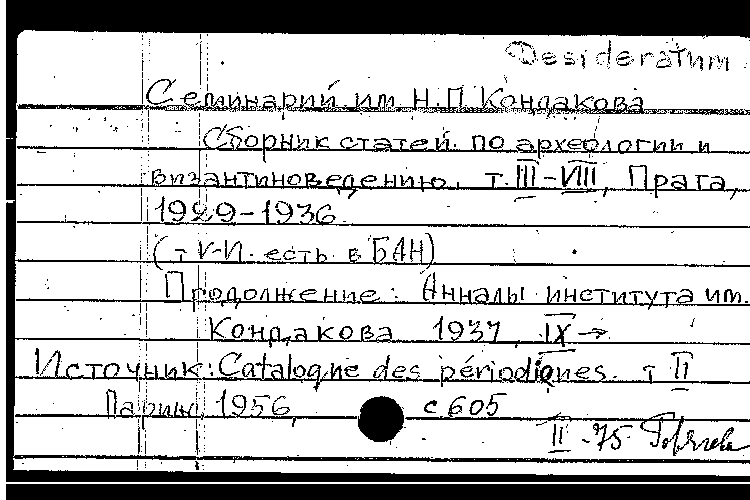 Desideratum
Семинарий им. Н.П. Кондакова
Сборник статей по археологии и
византиноведению, т. III–VIII, Прага,
1929–1936
(т V-VI. есть в БАН)
Продолжение: Анналы института им.
Кондакова 1937, IX →
Источник: Catalogue des périodiques. т II
Париж, 1956, с 605
II -75